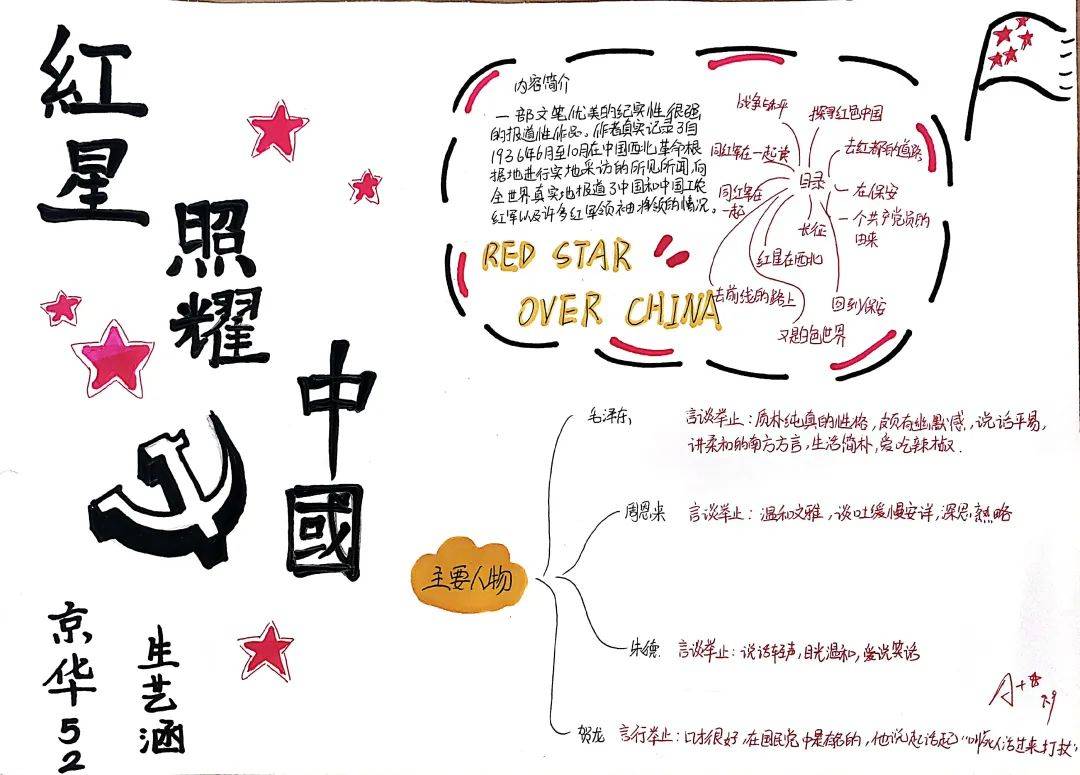 紅星
照耀
中國
京华52
生艺涵
内容简介
一部文笔优美的纪实性很强
的报道性作品。作者真实记录了自
1936年6月至10月在中国西北革命根
据地进行实地采访的所见所闻,向
全世界真实地报道了中国和中国工农
红军以及许多红军领袖、将领的情况。
RED STAR
OVER CHINA
目录
探寻红色中国
去红都的道路
在保安
一个共产党员的
由来
长征
红星在西北
去前线的路上
同红军在
一起
同红军在一起
战争与和平
回到保安
又是白色世界
主要人物
毛泽东:
言谈举止:质朴纯真的性格,颇有幽默感,说话平易,
讲柔和的南方方言,生活简朴,爱吃辣椒.
周恩来
言谈举止:温和文雅,谈吐缓慢安详,深思熟略
朱德:
言谈举止:说话轻声,目光温和,爱说笑话
贺龙
言行举止:口才很好,在国民党中是有名的,他说起话起“叫死人活过来打仗”
A+